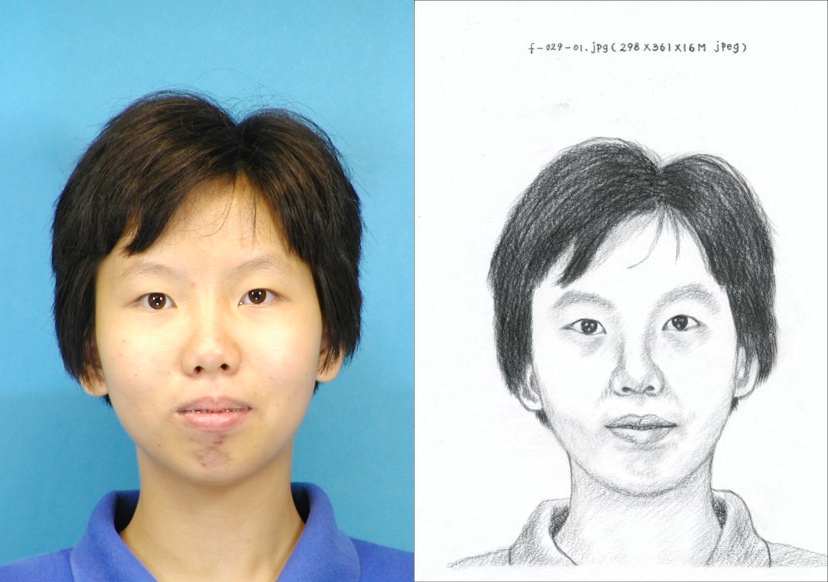 f-029-01.jpg(298X361X16M jpeg)